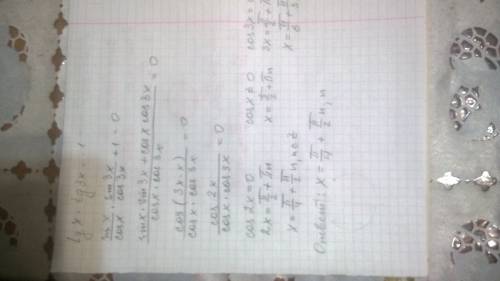 tg x · tg 3x = 1
sin x / cos x · sin 3x / cos 3x + 1 = 0
sin x · sin 3x + cos x cos 3x / cos x · cos 3x = 0
cos (3x - x) / cos x · cos 3x = 0
cos 2x / cos x · cos 3x = 0
cos 2x = 0 cos x ≠ 0 cos 3x
2x = π/2 + πn x = π/2 + πn 3x = π/2 + π
x = π/4 + π/2 n, n∈Z x = π/6 +
Ответ: x = π/4 + π/2 n, n